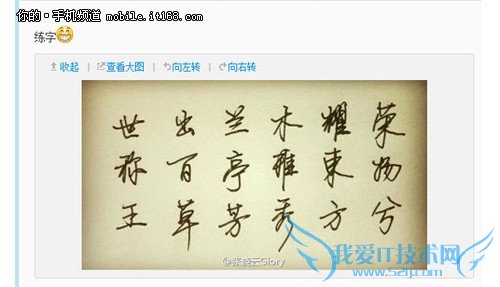 你的·手机频道 mobile.it168.com
练字
收起 | 查看大图 | 向左转 | 向右转
荣物兮
耀东方
木雅秀
兰亭芳
出百草
世称王
@张晓云Glory
我爱IT技术网
www.52ij.com